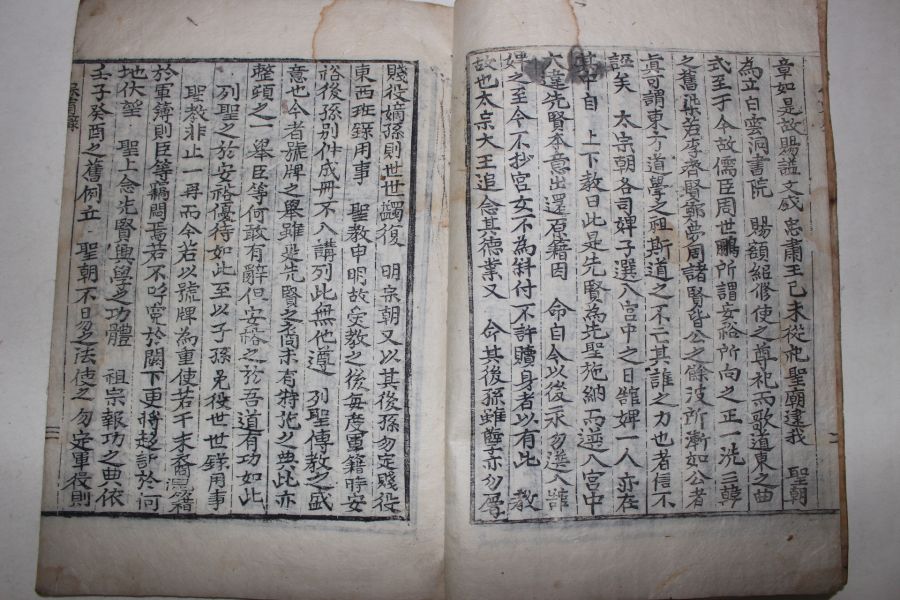 章如是故賜諡文成忠肅王己未從祀聖廟逮我 聖朝
為立白雲洞書院 賜額紹修使之尊祀而歌道東之曲
式至于今故儒臣周世鵬所謂安裕所向之正一洗三韓
之舊染若李齊賢鄭夢周諸賢皆公之餘波所漸如公者
眞可謂東方道學之祖斯道之不亡其誰之力也者信不
誣矣 太宗朝各司婢子選入宮中之日館婢一人亦在
其中自 上下教曰此是先賢為先聖施納而選入宮中
大違先賢本意出還原籍因 命自今以後永勿選入館
婢之至今不抄宮女不為斜付不許贖身者以有此 教
故也太宗大王追念其德業又 命其後孫雖孽亦勿辱
賤役嫡孫則世世蠲復 明宗朝又以其後孫勿定賤役
東西班錄用事 聖教申明故受教之後每度軍籍時安
裕後孫別件成冊不入講列此無他遵 列聖傳教之盛
意也今者號牌之舉雖是先賢之裔未有特弛之典此亦
整頭之一舉臣等何敢有辭但安裕之於吾道有功如此
列聖之於安裕優待如此至以子孫免役世世錄用事
聖教非止一再而今若以號牌為重使若干末裔混籍
於軍簿則臣等竊悶焉若不呼籲於闕下更將起訴於何
地伏望 聖上念先賢興學之功體 祖宗報功之典依
壬子癸酉之舊例立 聖朝不日忽之法使之勿定軍役則